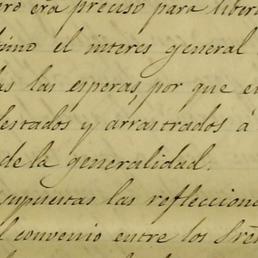 era preciso para liber
el interes general
las esperas, por que e
estados y arrastrados á
de la generalidad.
supuestas las refleccione
convenio entre los Sres